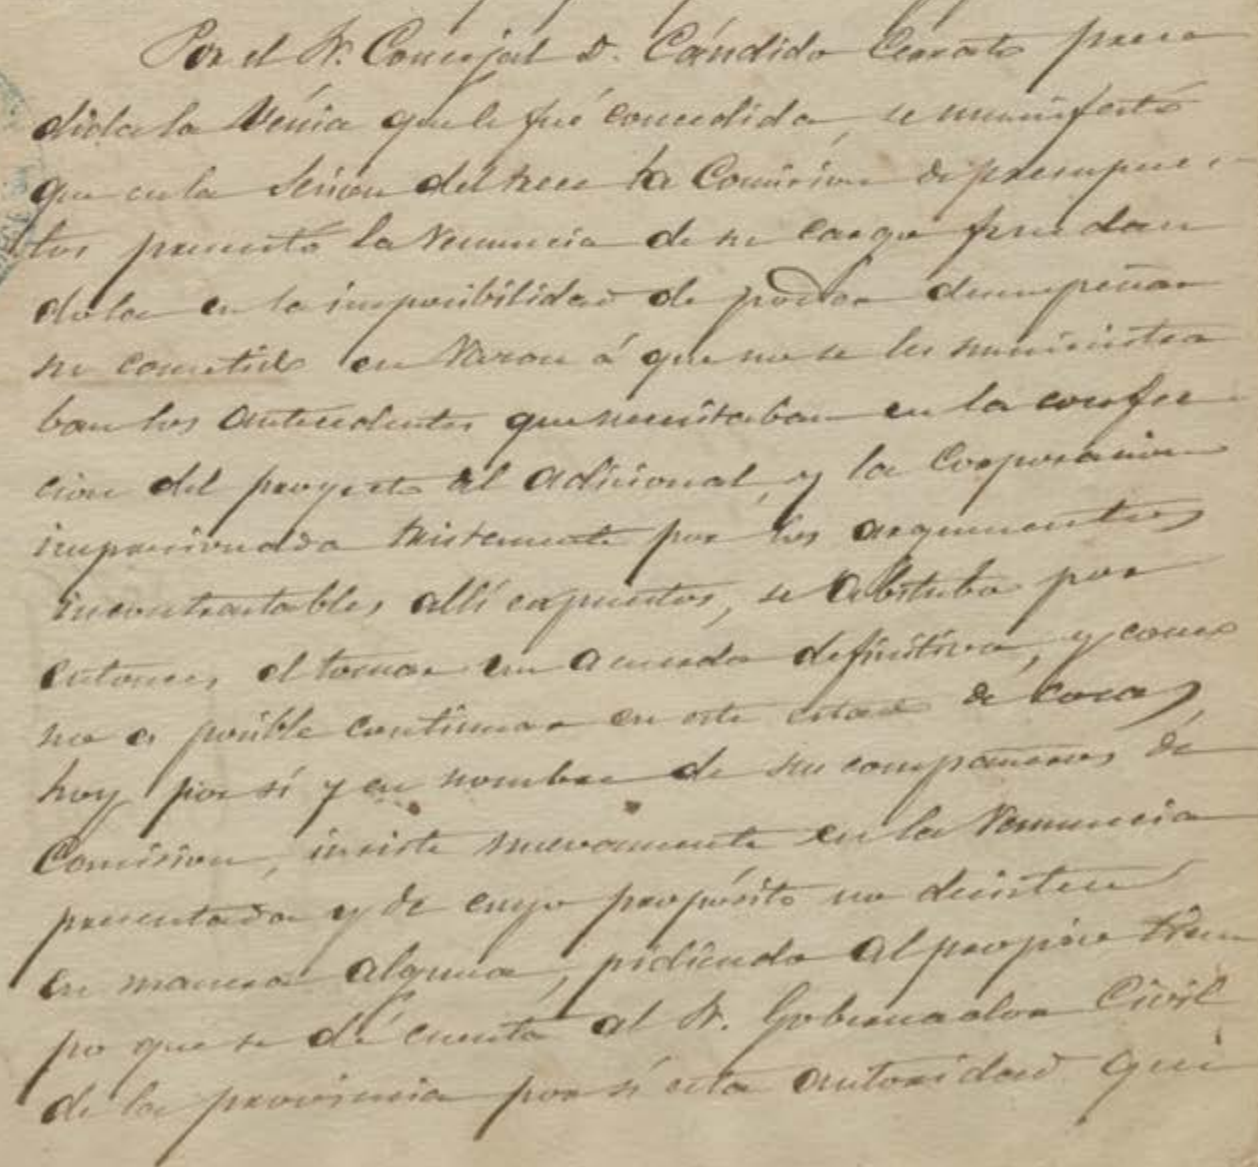 Por el Sr. Concejal D. Cándido Cerrato previa
dida la vénia que le fué concedida, se manifestó
que en la sesion del trece la Comision de presupues
tos presentó la renuncia de su cargo fundan
dola en la imposibilidad de poder desempeñar
su cometido en razon á que no se les suministra
ban los antecedentes que necesitaban en la confec
cion del proyecto al adicional, y la Corporacion
impresionada tristemente por los argumentos
incontrastables allí expuestos, se abstubo por
entonces el tomar un acuerdo definitivo, y como
no es posible continuar en este estado de cosas,
hoy por sí y en nombre de sus compañeros de
Comision, insiste nuevamente en la renuncia
presentada y de cuyo propósito no desisten
en manera alguna, pidiendo al propio tiem
po que se dé cuenta al Sr. Gobernador Civil
de la provincia por si esta autoridad que